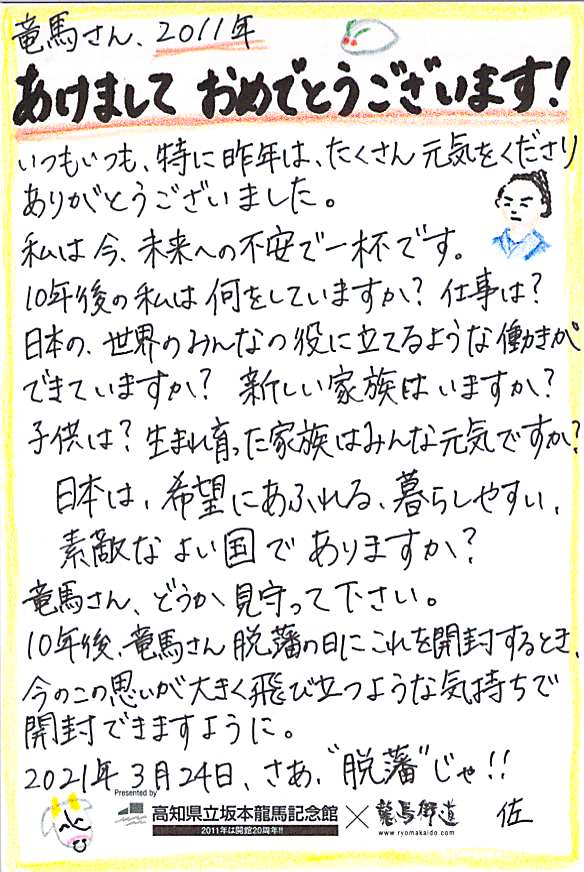 竜馬さん、2011年
あけまして おめでとうございます!
いつもいつも、特に昨年は、たくさん元気をくださり
ありがとうございました。
私は今、未来への不安で一杯です。
10年後の私は何をしていますか? 仕事は?
日本の、世界のみんなの役に立てるような働きが
できていますか? 新しい家族はいますか?
子供は? 生まれ育った家族はみんな元気ですか?
日本は、希望にあふれる、暮らしやすい、
素敵なよい国でありますか?
竜馬さん、どうか見守って下さい。
10年後、竜馬さん脱藩の日にこれを開封するとき、
今のこの思いが大きく飛び立つような気持ちで
開封できますように。
2021年3月24日、さあ、"脱藩"じゃ!!
Presented by
高知県立坂本龍馬記念館 × 龍馬街道 佐
2011年は開館20周年!! www.ryomakaido.com